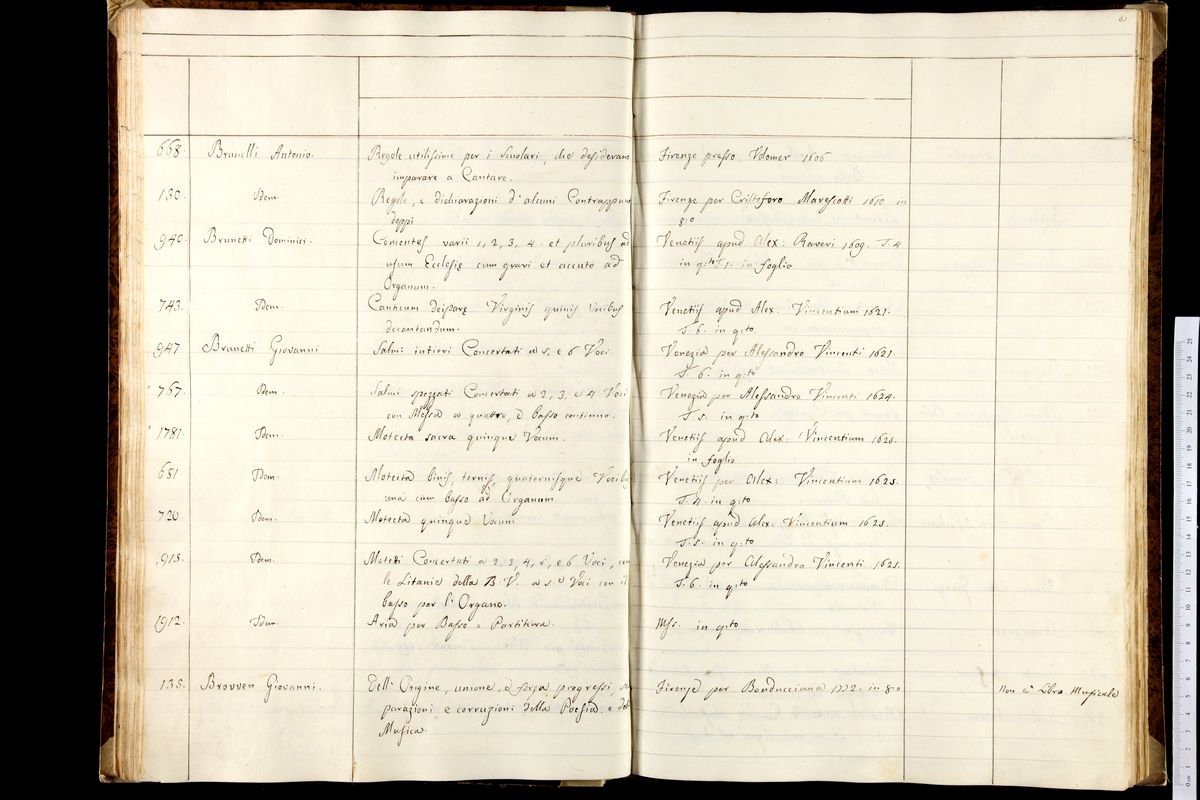 61
668. Brunelli Antonio. Regole utilissime per i Scolari, che desiderano Firenze presso Volomer 1606
imparare a Cantare.
130. Idem. Regole, e dichiarazioni d'alcuni Contrappun Firenze per Cristoforo Marescotti 1610. in
doppi 8:o
940. Brunetti Dominici. Concentes varii 1, 2, 3, 4. et pluribus ad Venetiis apud Alex: Raveri 1609. T. 4
usum Ecclesię cum gravi et accuto ad in q:to T. 1. in foglio
Organum.
743. Idem. Canticum deiparę Virginis quinis Vocibus Venetiis apud Alex: Vincentium 1621.
decantandum. T. 6. in q:to
947. Brunetti Giovanni Salmi intieri Concertati a 5, e 6 Voci Venezia per Alessandro Vincenti 1621.
T. 6. in q:to
767. Idem. Salmi spezzati Concertati a 2, 3, e 4 Voci Venezia per Alessandro Vincenti 1624.
con Messa a quattro, e basso continuo. T. 5. in q:to
1781. Idem. Motecta sacra quinque Vocum. Venetiis apud Alex: Vincentium 1625.
in foglio
651 Idem. Motecta binis, ternis, quaternisque Vocibus Venetiis per Alex: Vincentium 1625.
una cum basso ad Organum T. 4. in q:to
720 Idem. Motecta quinque Vocum Venetiis apud Alex: Vincentium 1625.
T. 5. in q:to
915. Idem. Motetti Concertati a 2, 3, 4, 5, e 6 Voci, con Venezia per Alessandro Vincenti 1625.
le Litanie della B. V. a 5 Voci con il T. 6. in q:to
basso per l'Organo.
1912. Idem. Aria per Basso = Partitura. Mss. in q:to
135. Brovven Giovanni. Dell'Origine, unione, e forza, progressi, se Firenze per Bonducciana 1772. in 8:o Non è Libro Musicale
parazioni, e corruzioni della Poesia, e della
Musica.